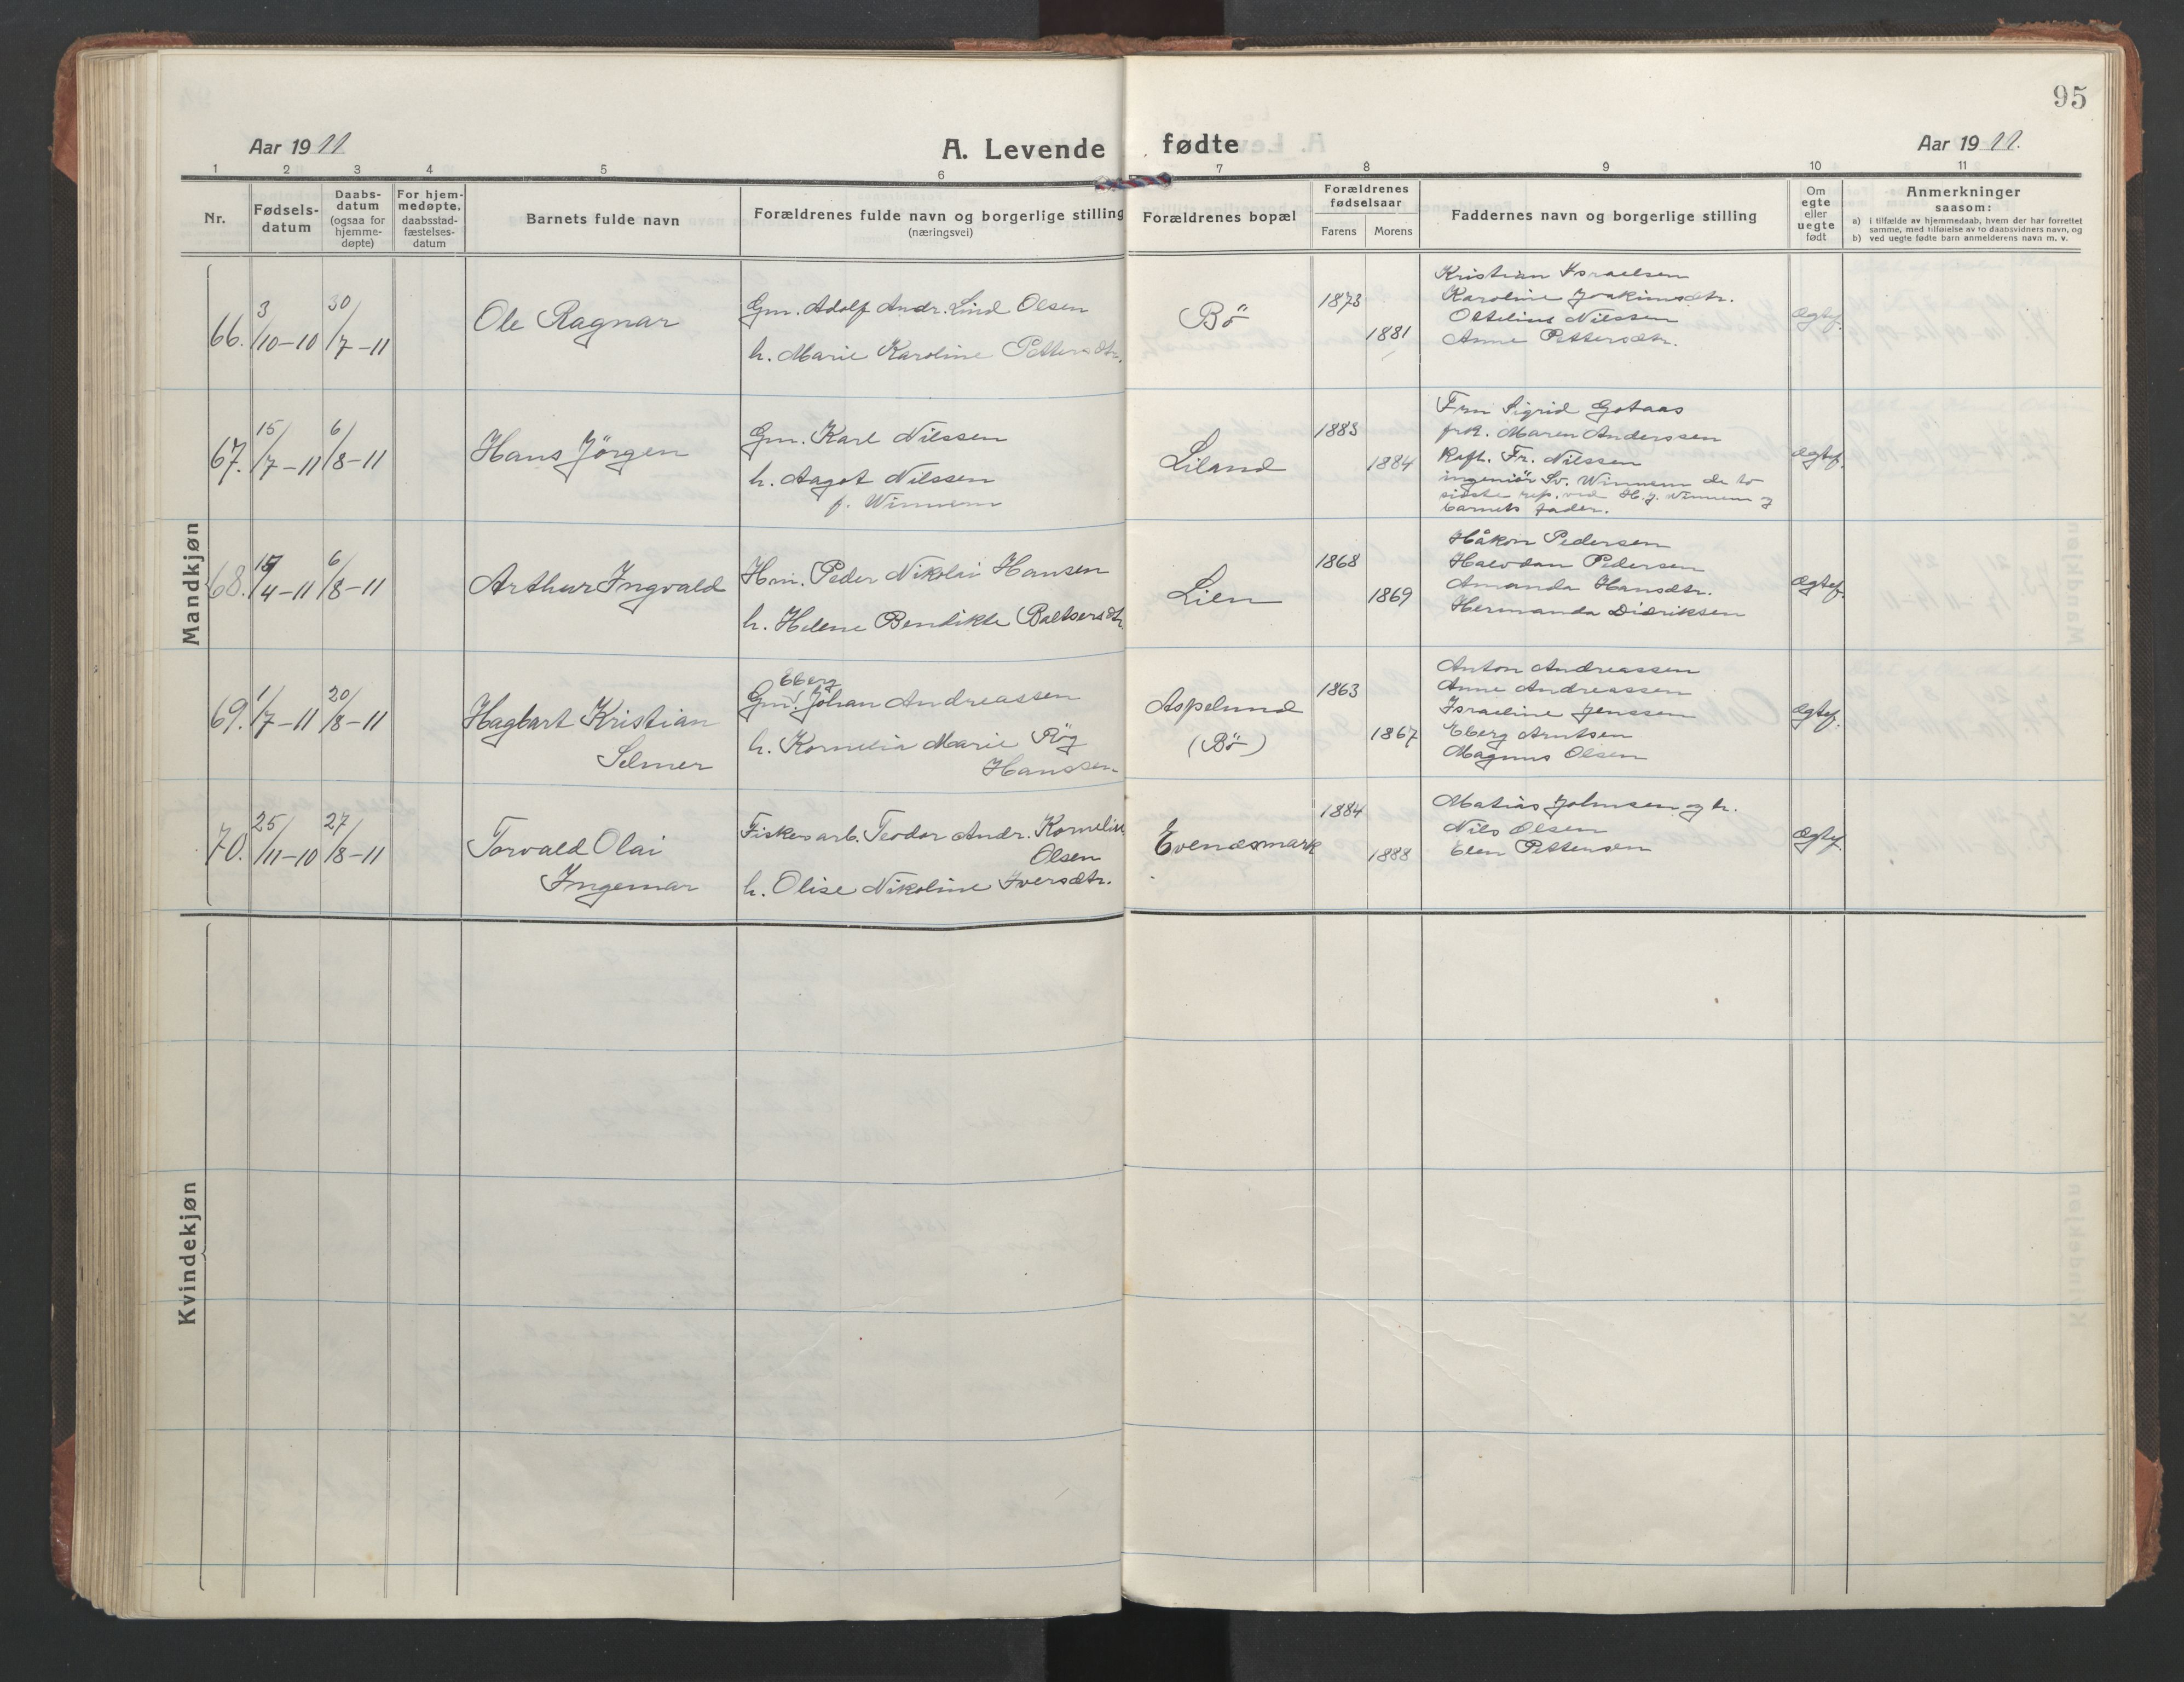 95
Aar 1911
A. Levende fødte
Aar 1911.
1 2 3 4 5 6 7 8 9 10 11
Nr.
Fødsels-
datum
Daabs-
datum
(ogsaa for
hjemme-
døpte)
For hjem-
medøpte,
daabsstad-
fæstelses-
datum
Barnets fulde navn
Forældrenes fulde navn og borgerlige stilling
(næringsvei)
Forældrenes bopæl
Forældrenes
fødselsaar
Farens Morens
Faddernes navn og borgerlige stilling
Om
egte
eller
uegte
født
Anmerkninger
saasom:
a) i tilfælde av hjemmedaab, hvem der har forrettet
samme, med tilføielse av to daabsvidners navn, og
b) ved uegte fødte barn anmelderens navn m. v.
Mandkjøn
66. 3/10-10 30/7-11
Ole Ragnar
Gm. Adolf Andr. Lind Olsen
h. Marie Karoline Pettersdtr.
Bö
1873
1881
Kristian Israelsen
Karoline Joakimsdtr.
Ottelius Nilssen
Anne Pettersdtr.
ægtef.
67. 15/7-11 6/8-11
Hans Jörgen
Gm. Karl Nilssen
h. Aagot Nilssen
f. Winnem
Liland
1883
1884
Fru Sigrid Gotaas
frk. Maren Anderssen
Kafh. Fr. Nilssen
ingeniör Sv. Winnem de to
sidste rep. ved H. J. Winnem og
barnets fader.
ægtef.
68. 15/4-11 6/8-11
Arthur Ingvald
Hm. Peder Nikolai Hansen
h. Helene Bendikte Baltsersdtr.
Lien
1868
1869
Håkon Pedersen
Halvdan Pedersen
Amanda Hansdtr.
Hermanda Didriksen
ægtef.
69. 1/7-11 20/8-11
Hagbart Kristian
Selmer
Ebberg
Gm. Johan Andreassen
h. Kornelia Marie Røg
Hanssen
Aspelund
(Bö)
1863
1867
Anton Andreassen
Anne Andreassen
Israeline Jenssen
Eberg Arntsen
Magnus Olsen
ægtef.
70. 25/11-10 27/8-11
Torvald Olai
Ingemar
Fiskerarb. Teodor Andr. Kornelius
Olsen
h. Olise Nikoline Iversdtr.
Evenesmark
1884
1888
Matias Johnsen og h.
Nils Olsen
Elen Pettersen
ægtef.
Kvindekjøn